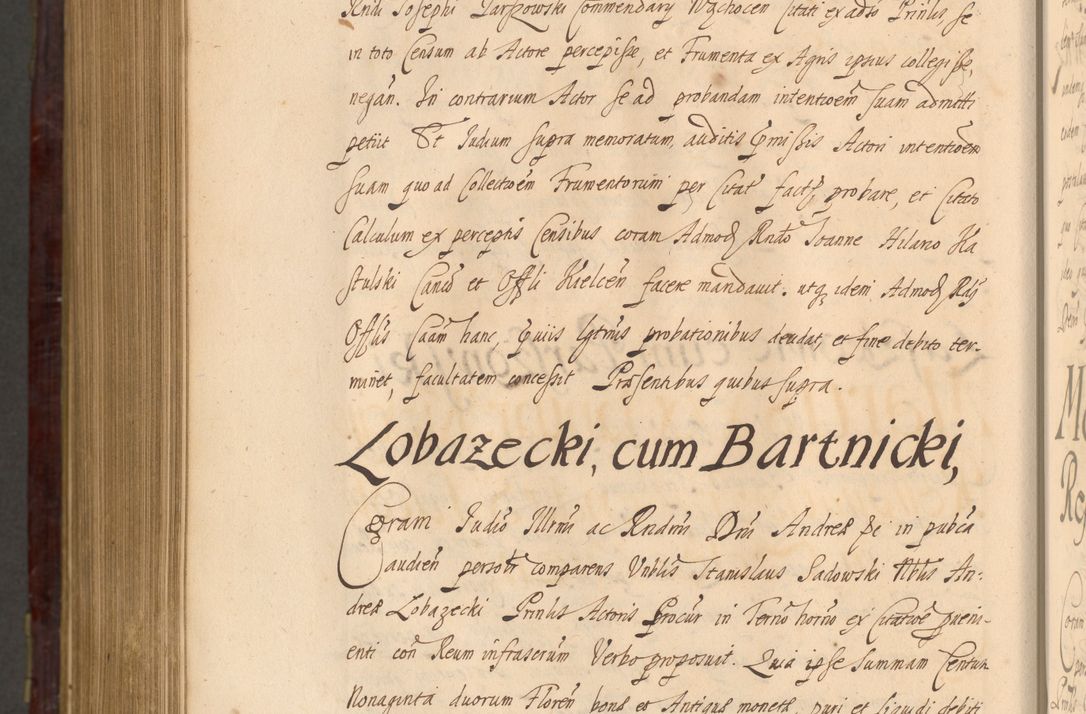 Rndi Josephi Parszowski Commendarij Wąchocen Citati ex adso Prinlis, se
in toto Censum ab Actore percepisse, et Frumenta ex Agris ipsius collegisse,
negan̄. In contrarium Actor se ad probandam intentioem̄ suam admitti
petiit Et Judium supra memoratum, auditis p̄missis Actori intentioem̄
suam quo ad Collectioem̄ Frumentorum per Citat̄ fact, probare, et Citato
Calculum ex perceptis Censibus coram Admod Rndo Joanne Hilario Ha
stulski Canco et Offli Kielcen̄ facere mandavit. utq idem Admod Rdg
Offlis Caam̄ hanc, p̄viis lgtmis probationibus deudat, et fine debito ter-
minet, facultatem concessit Præsentibus quibus supra.
Lobazecki, cum Bartnicki,
Coram Judio Illrmi ac Rndmi Dni Andreæ Ep̄i in pubca
audien̄ persolr̄ comparens Vnblis Stanislaus Sadowski Nblis An-
dreæ Lobazecki Prinlis Actoris Procur̄ in Termo horno ex Citatioe p̄veni-
enti con̄ Reum infrascrum̄ Verbo proposuit. Quia ipse Summam Centum
Nonaginta duorum Floren̄ bonæ et Antiquæ monetæ, puri et liquidi debiti